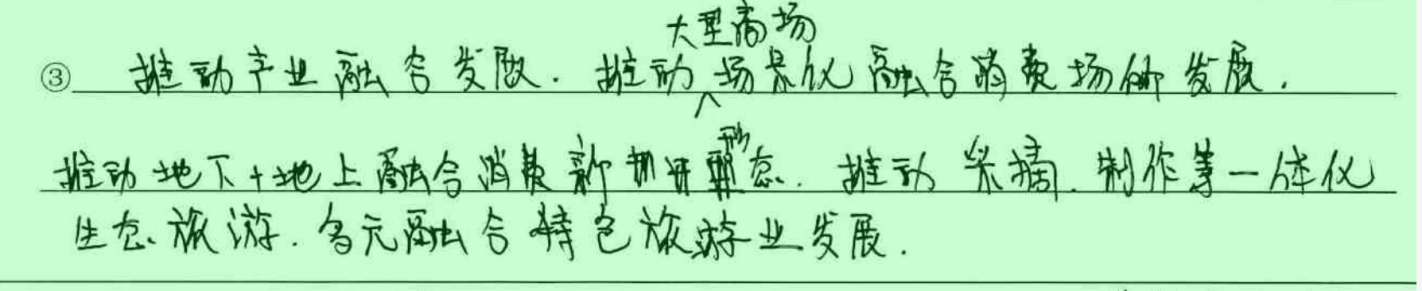 大型商场
③ 推动产业融合发展. 推动^场景化融合消费场所发展.
推动地下+地上融合消费新形态. 推动采摘.制作等一体化
生态旅游.多元融合特色旅游业发展.